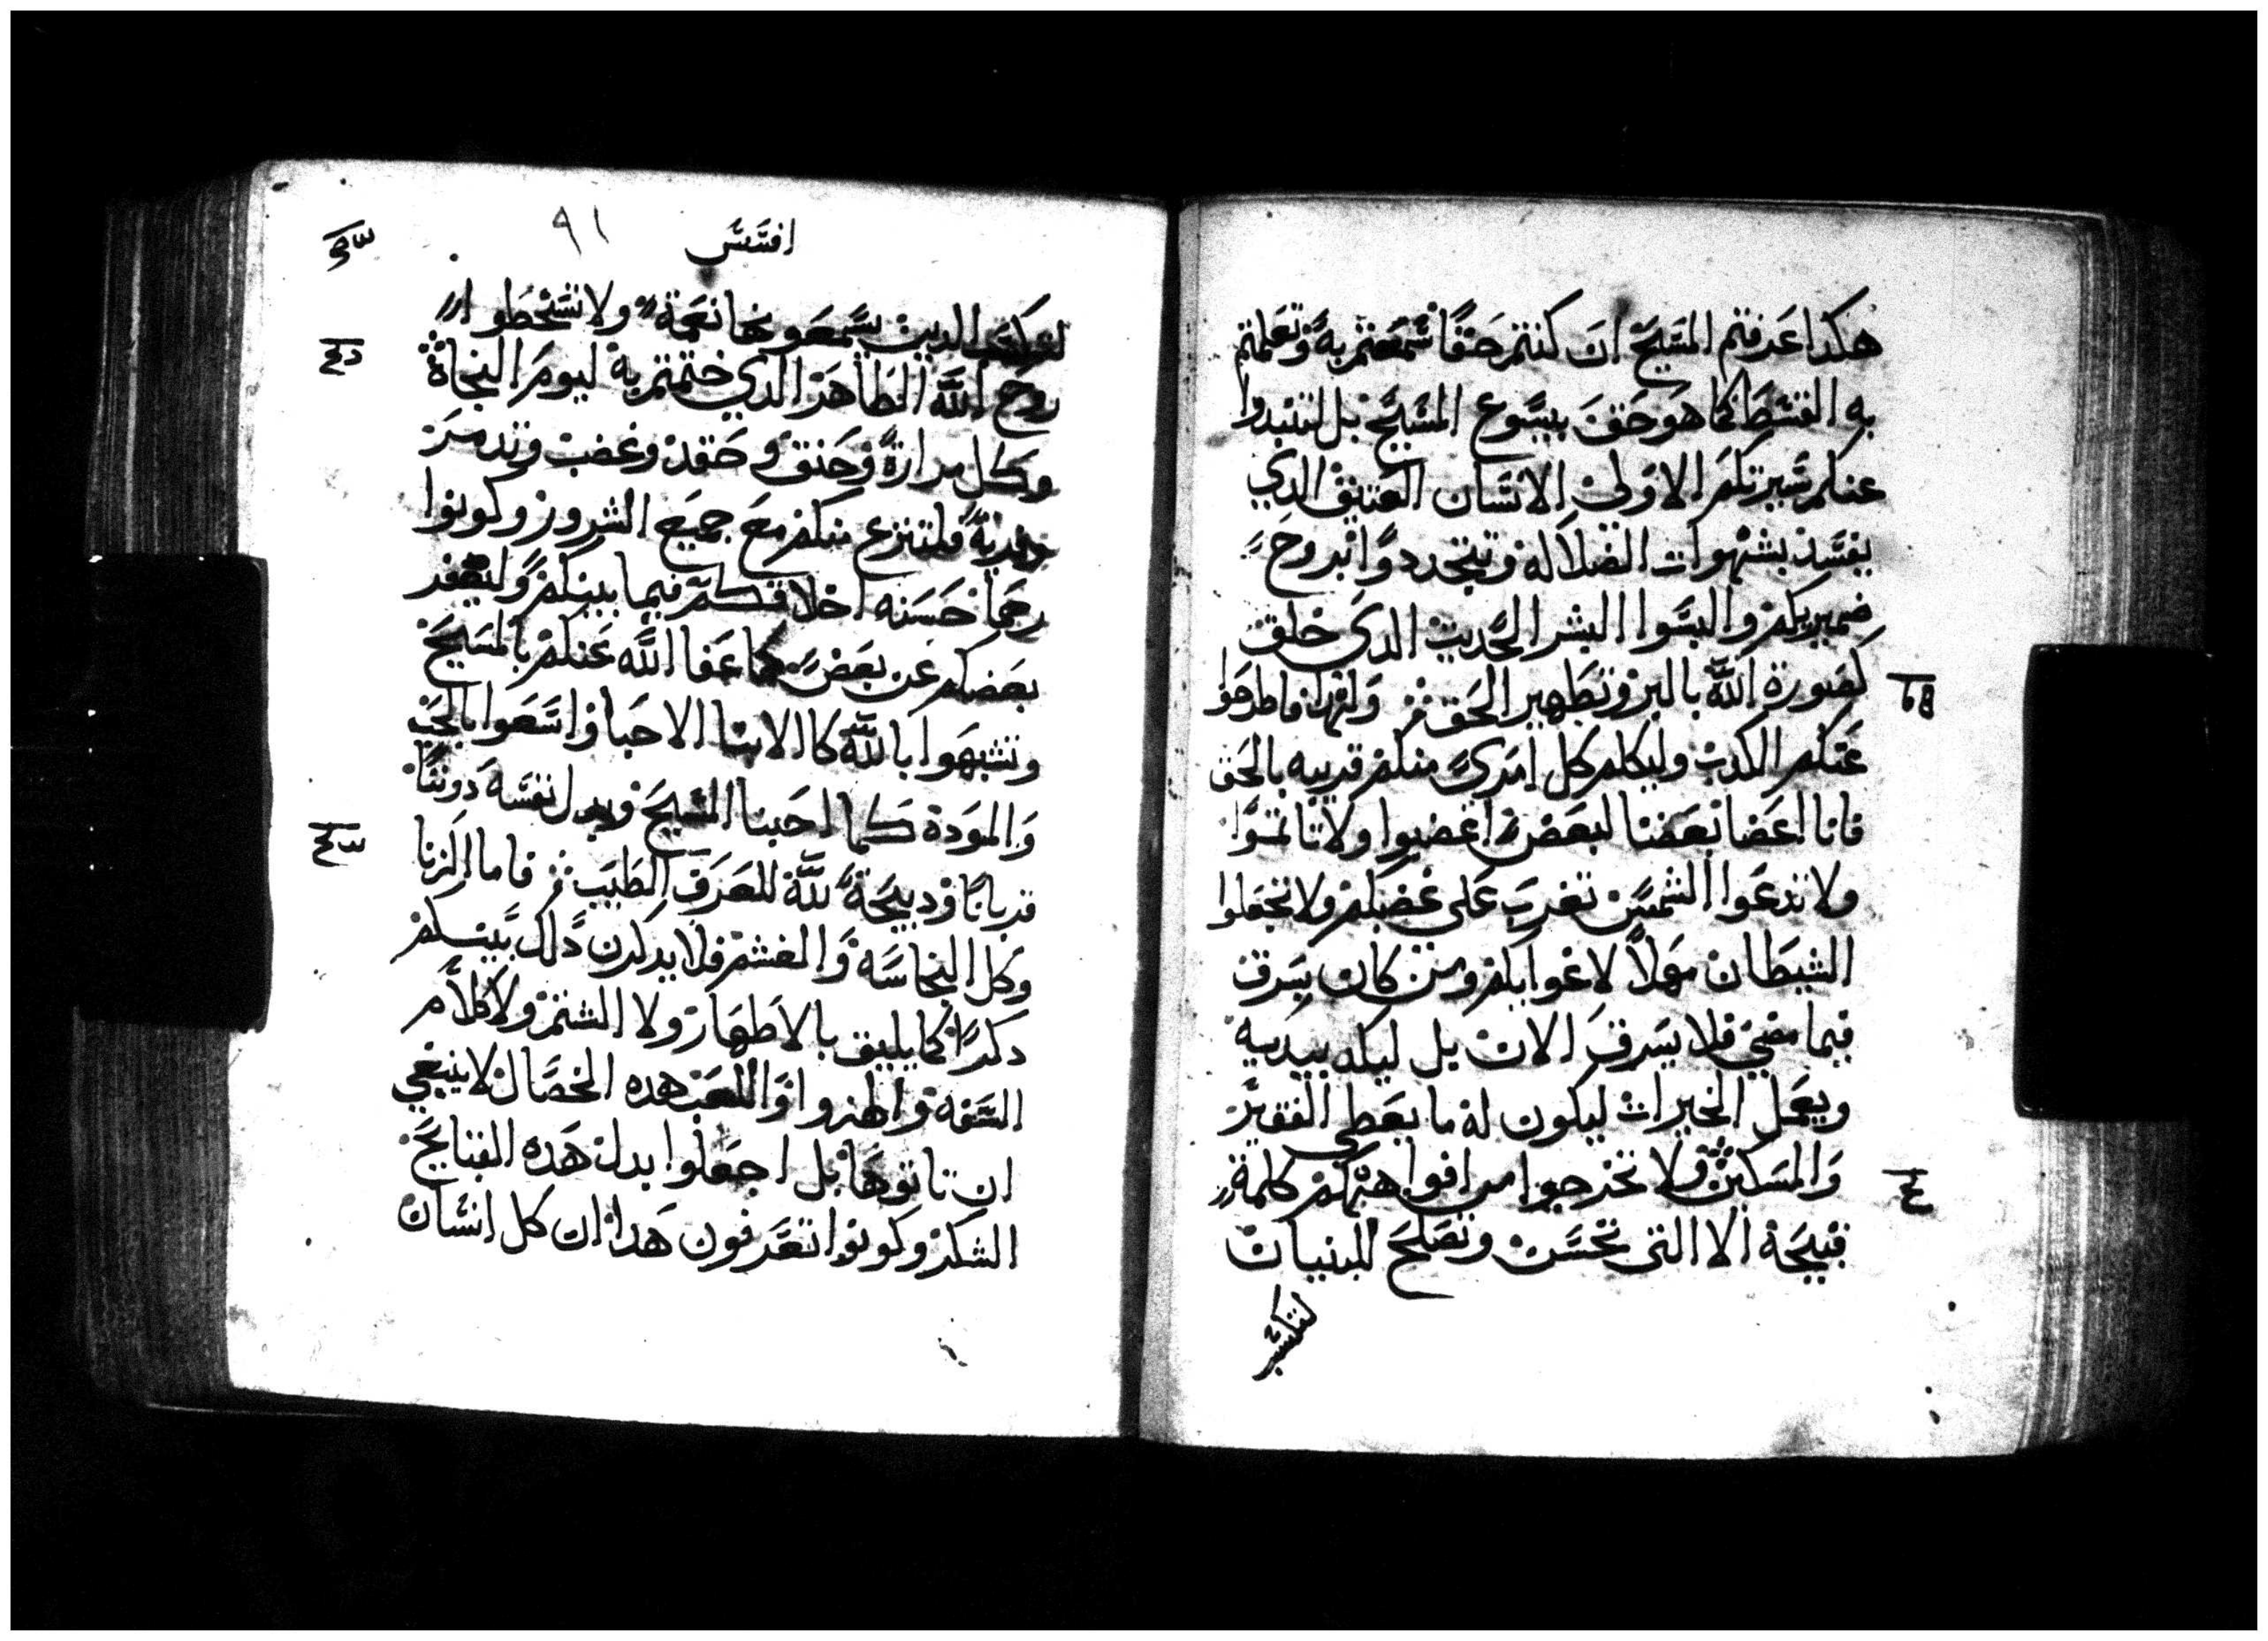 هكدا عرفتم المسيح ان كنتم حقا سمعتم به وتعلمتم
به القسط كما هو حق بيسوع المسيح بل لتنبدوا
عنكم سيرتكم الاولي الانسان العتيق الدي
يفسد بشهوات الضلاله وتتجددوا بروح
ضميريكم والبسوا البشر الحديث الدي خلق
كصورة الله بالبر وتطهير الحق ولهدا فاطرحوا
عنكم الكدب وليكلم كل امرئ منكم قريبه بالحق
فانا اعضا بعضنا لبعض اغضبوا ولا تاثموا
ولا تدعوا الشمس تغرب على غضبكم ولا تجعلوا
الشيطان مهلا لاغوايكم ومن كان يسرق
فيما مضي فلا يسرق الان بل ليكد بيديه
ويعمل الخيرات ليكون له ما يعطي الفقير
والمسكين ولا تخرجوا من افواهكم كلمة
قبيحة الا التي تحسن وتصلح للبنيان
لتكتسب
افسس
٩١
لتكتسب الدين يسمعونها نعمة ولا تسخطوا
روح الله الطاهر الدي ختمتم به ليوم النجاة
وكل مرارة وحنق وحقد وغضب وتدمر
وفرية فلتنزع منكم مع جميع الشرور وكونوا
رحما حسنه اخلاقكم فيما بينكم وليصفر
بعضكم عن بعض كما عفا الله عنكم بالمسيح
وتشبهوا بالله كالابنا الاحبا واسعوا بالحب
والمودة كما احبنا المسيح وبدل نفسه دوننا
قربانا ودبيحة لله للعرف الطيب فاما الزنا
وكل النجاسه والغشم فلا يدكرن دلك بينكم
دكرا كما يليق بالاطهار ولا الشتم ولا كلام
السفه والهزوا واللعب هده الخصال لا ينبغي
ان تاتوها بل اجعلوا بدل هده القبايح
الشكر وكونوا تعرفون هدا ان كل انسان